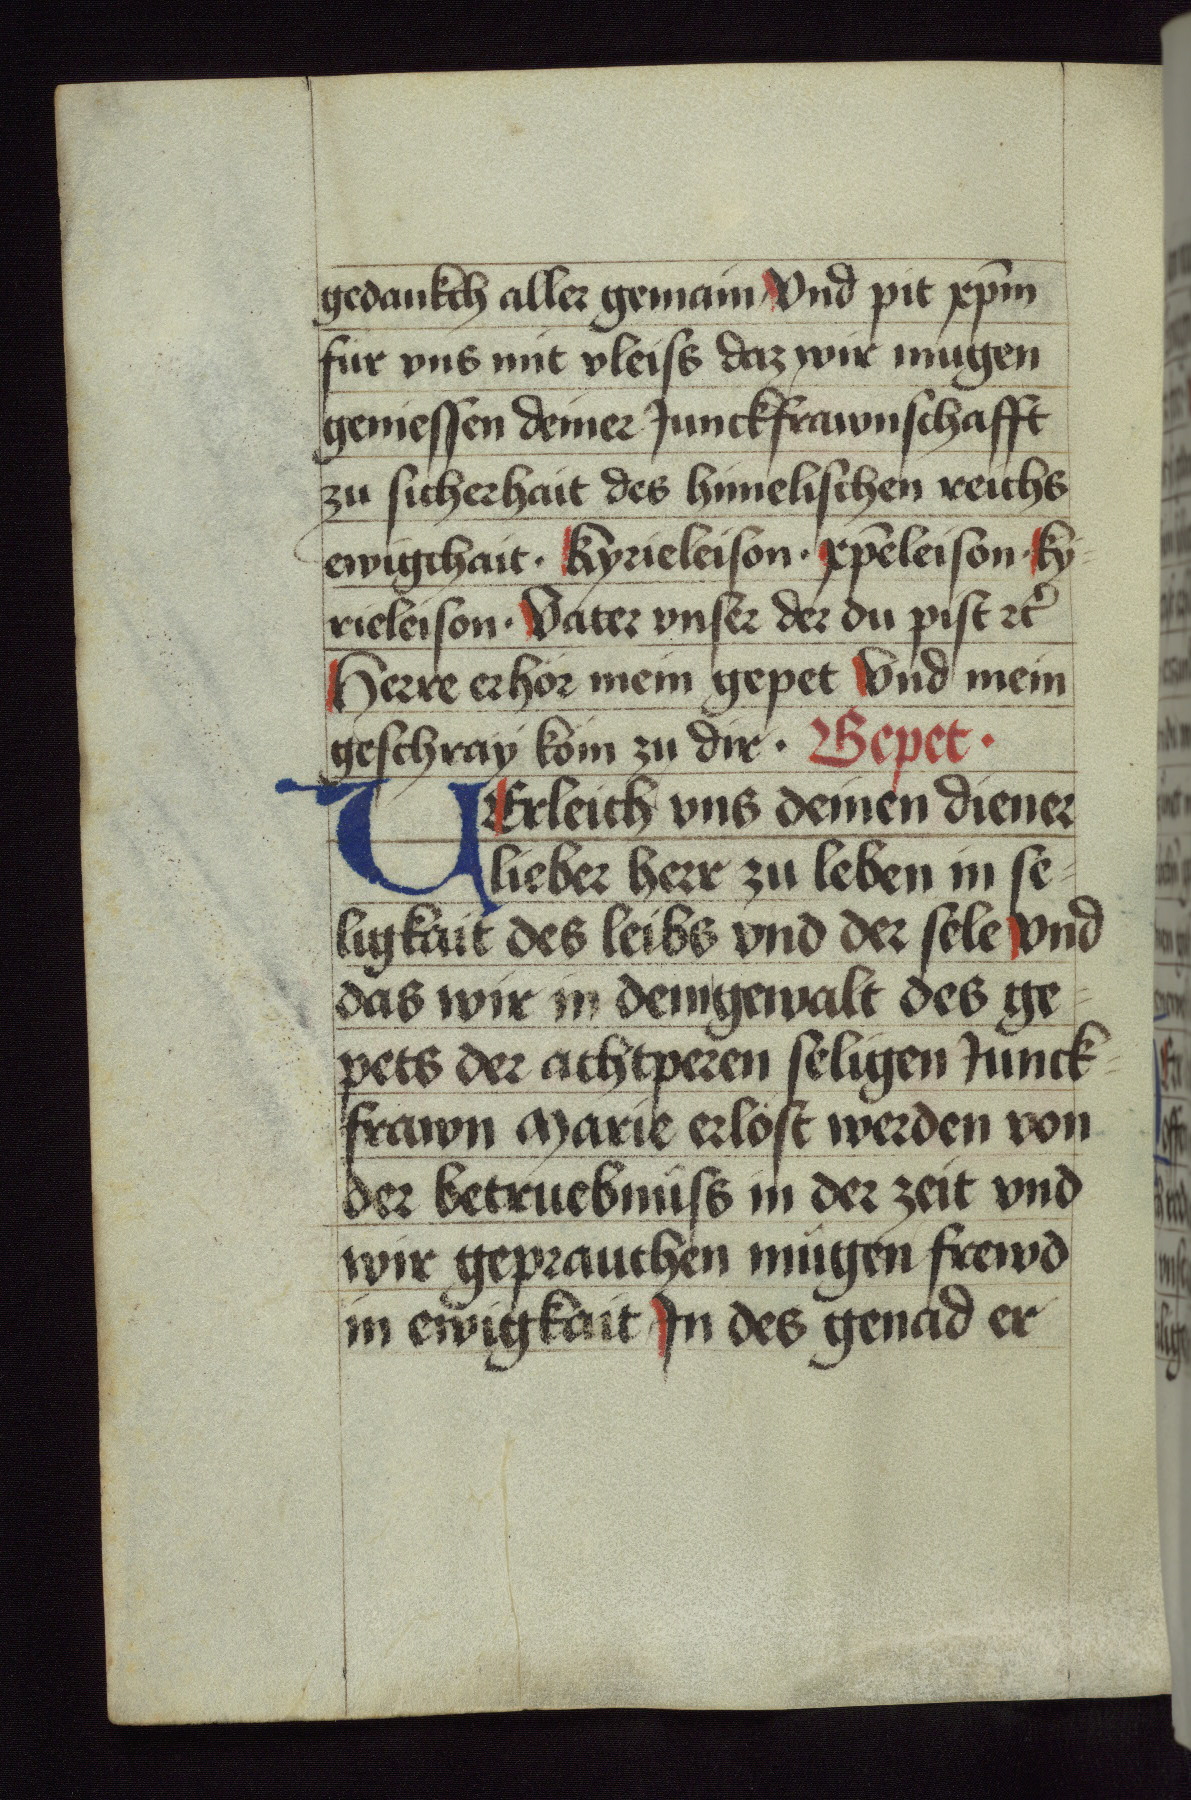 gedankch aller gemain Vnd pit xp̄m
für vns mit vleiss daz wir mügen
geniessen deiner Junckfrawnschafft
zu sicherhait des himelischen reichs
ewigchait · Kyrieleison · xp̄eleison · ky-
rieleison · Vater vnser der du pist ⁊c̄
Herre erhör mein gepet Vnd mein
geschray köm zu dir · Gepet ·
VErleich vns deinen diener
lieber herr zu leben in se-
ligkait des leibs vnd der sele vnd
das wir in dem gewalt des ge-
pets der achtperen seligen Junck-
frawn Marie erlöst werden von
der betruebnüss in der zeit vnd
wir geprauchen mügen frewd
in ewigkait In des genad er